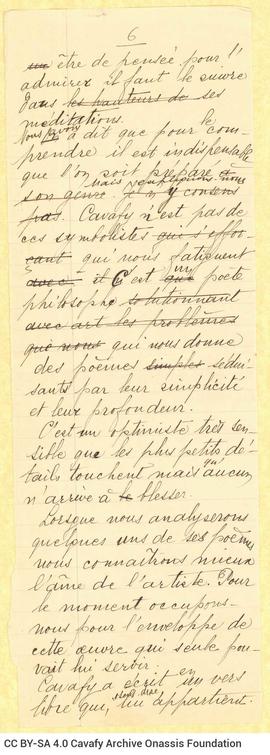 6
être de pensée pour l'
admirer il faut le suivre
dans les hauteurs de ses
méditations.
Nous avons dit que pour le com-
prendre il est indispensable
que l'on soit préparé à
mais
son genre. J'en y consens
pas. Cavafy n'est pas de
ces symbolistes qui s'effor-
cant qui nous fatiguent
avec il C'est que un poète
philosophe solutionnant
avec art les problèmes
que nous qui nous donne
des poèmes simples sédui-
sants par leur simplicité
et leur profondeur.
C'est un optimiste très sen-
sible que les plus petits dé-
tails touchent mais qu'aucun
n'arrive à le blesser.
Lorsque nous analyserons
quelques uns de ses poèmes
nous connaîtrons mieux
l'âme de l'artiste. Pour
le moment occupons-
nous pour l'enveloppe de
cette œuvre qui seule pou-
vait lui servir.
Cavafy a écrit en vers
libre que, lui appartient.
CC BY-SA 4.0 Cavafy Archive Onassis Foundation